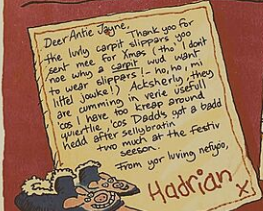 Deer Antie Jayne,
Thank you for
the luvly carpit slippars you
sent mee for Xmas (tho' I don't
noe why a carpit wud want
to wear slippars!- ho, ho, mi
littel jouke!) Acksherly, they
are cumming in verie usefull
'cos I have too kreap around
quiertlie, 'cos Dadd's got a badd
hedd after sellybratin'
two much at the festiv
seeson.
From yor luving nefyoo,
Hadrian x